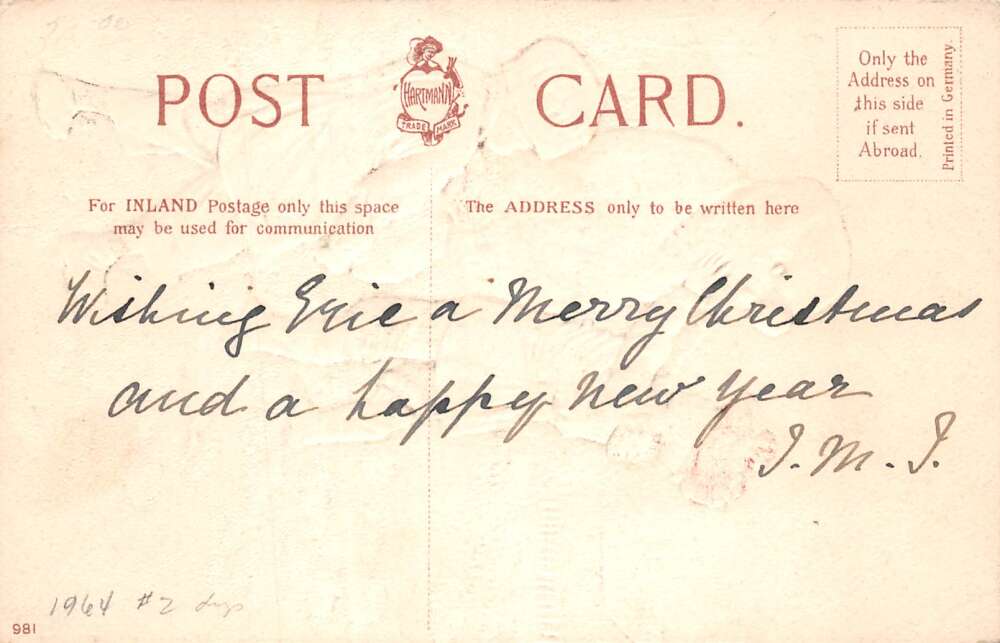 POST CARD.
HARTMANN
TRADE MARK
Only the
Address on
this side
if sent
Abroad.
Printed in Germany.
For INLAND Postage only this space
may be used for communication
The ADDRESS only to be written here
Wishing Evie a Merry Christmas
and a happy New Year
J. M. J.
1964 #2
981